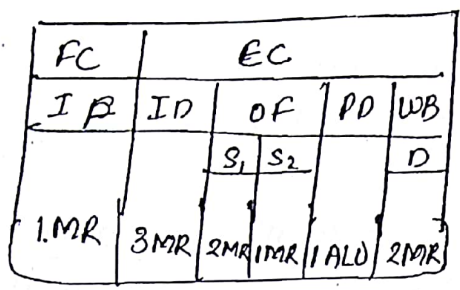 FC EC
IF ID OF PD WB
S1 S2 D
1.MR 3MR 2MR 1MR 1ALU 2MR